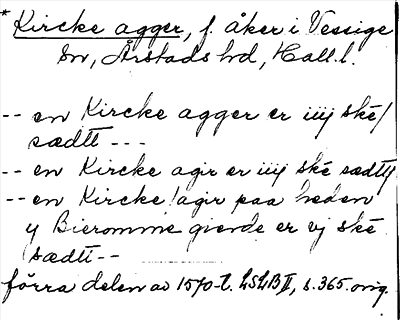 * Kircke agger, f. åker i Vessige
sn, Årstads hd, Hall. l.
-- en Kircke agger er iiij ske/
sædtt ---
-- en Kircke agir er iiij ske sædtt
-- en Kircke/agir paa heden
y Bieromme gierde er vj ske
sædtt --
förra delen av 1570-t. LSLB II, s. 365. orig.